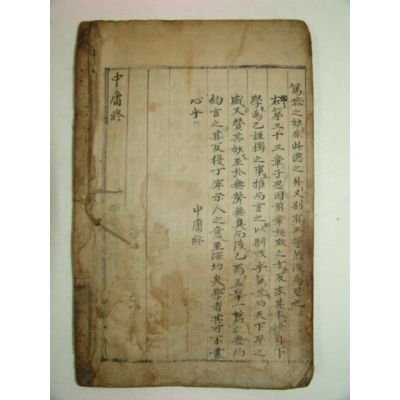 篤恭之妙非此德之外又別有三等然後爲至也
右第三十三章子思因前章極致之言反求其本復自下
學爲己謹獨之事推而言之以馴致乎篤恭而天下平之
盛又贊其妙至於無聲無臭而後已焉蓋舉一篇之要而
約言之其反復丁寧示人之意至深切矣學者其可不盡
心乎
中庸終
中庸終